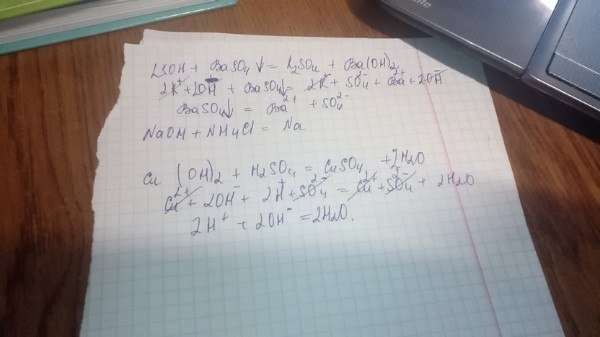 2KOH + BaSO4↓ = K2SO4 + Ba(OH)2
2K⁺ + 2OH⁻ + BaSO4↓ = 2K⁺ + SO4²⁻ + Ba²⁺ + 2OH⁻
BaSO4↓ = Ba²⁺ + SO4²⁻
NaOH + NH4Cl = Na
Cu(OH)2 + H2SO4 = CuSO4 + 2H2O
Cu²⁺ + 2OH⁻ + 2H⁺ + SO4²⁻ = Cu²⁺ + SO4²⁻ + 2H2O
2H⁺ + 2OH⁻ = 2H2O.